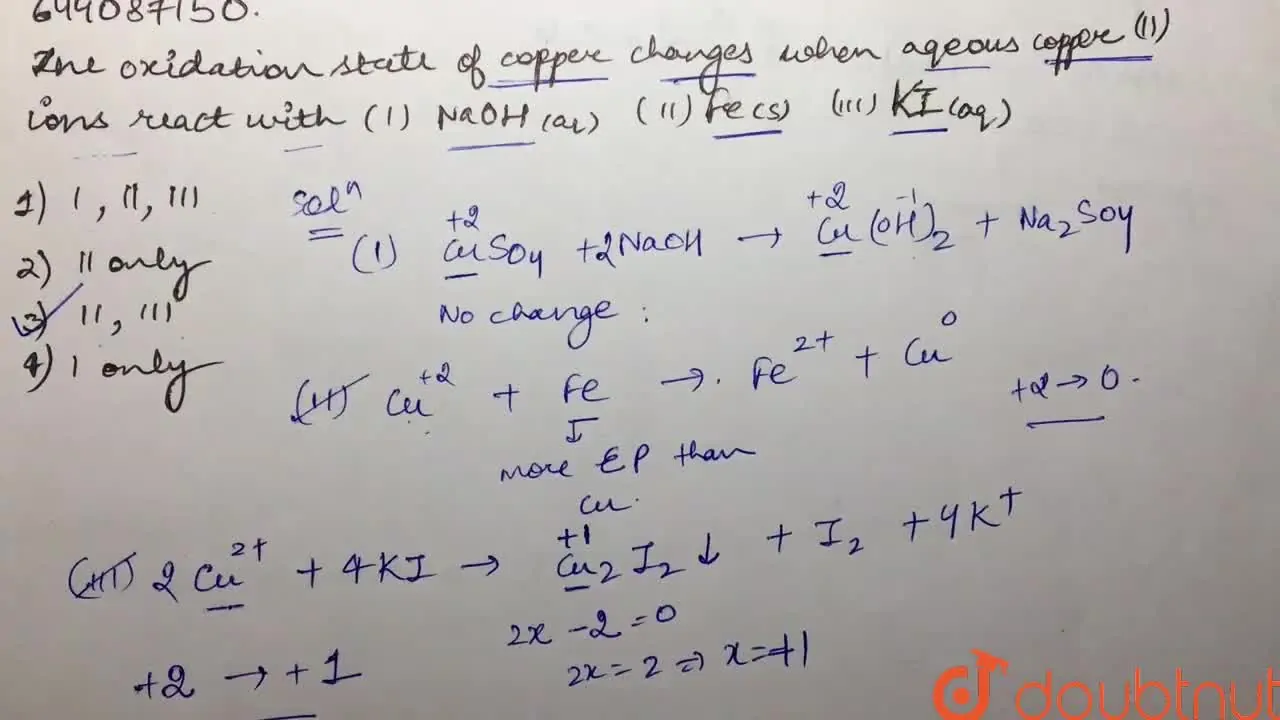 644087150.
The oxidation state of copper changes when aqeous copper (II)
ions react with (I) NaOH (aq) (II) Fe(s) (III) KI (aq)
1) I, II, III
2) II only
3) II, III
4) I only
Solⁿ
(I) +2 CuSO4 + 2NaOH → +2 Cu(OH)₂ -1 + Na2SO4
No change :
(II) Cu+2 + Fe →. Fe2+ + Cu0
+2 → 0.
more EP than
Cu.
(III) 2Cu2+ + 4KI → +1 Cu2I2 ↓ + I2 + 4K+
2x - 2 = 0
2x = 2 ⇒ x = +1
+2 → +1
doubtnut